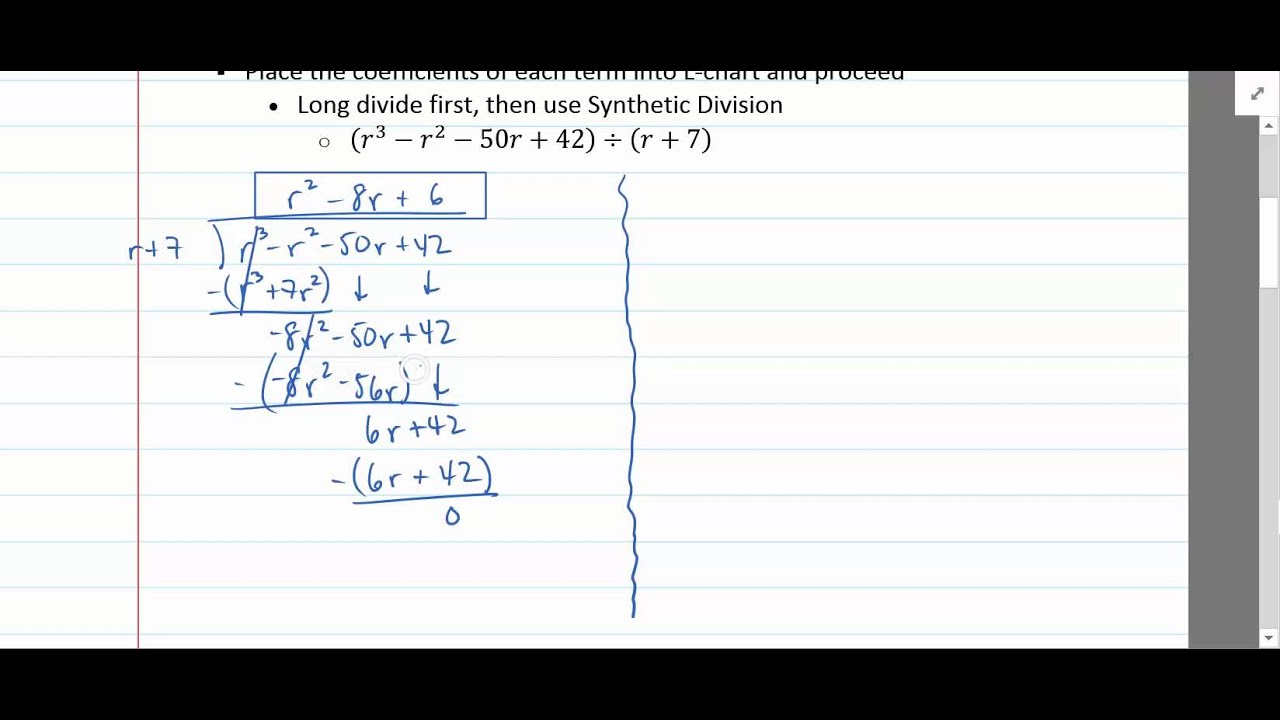 Place the coefficients of each term into L-chart and proceed
• Long divide first, then use Synthetic Division
○ (r³ − r² − 50r + 42) ÷ (r + 7)
r² - 8r + 6
r+7 ) r³ - r² - 50r + 42
-(r³ + 7r²) ↓ ↓
-8r² - 50r + 42
-(-8r² - 56r) ↓
6r + 42
-(6r + 42)
0